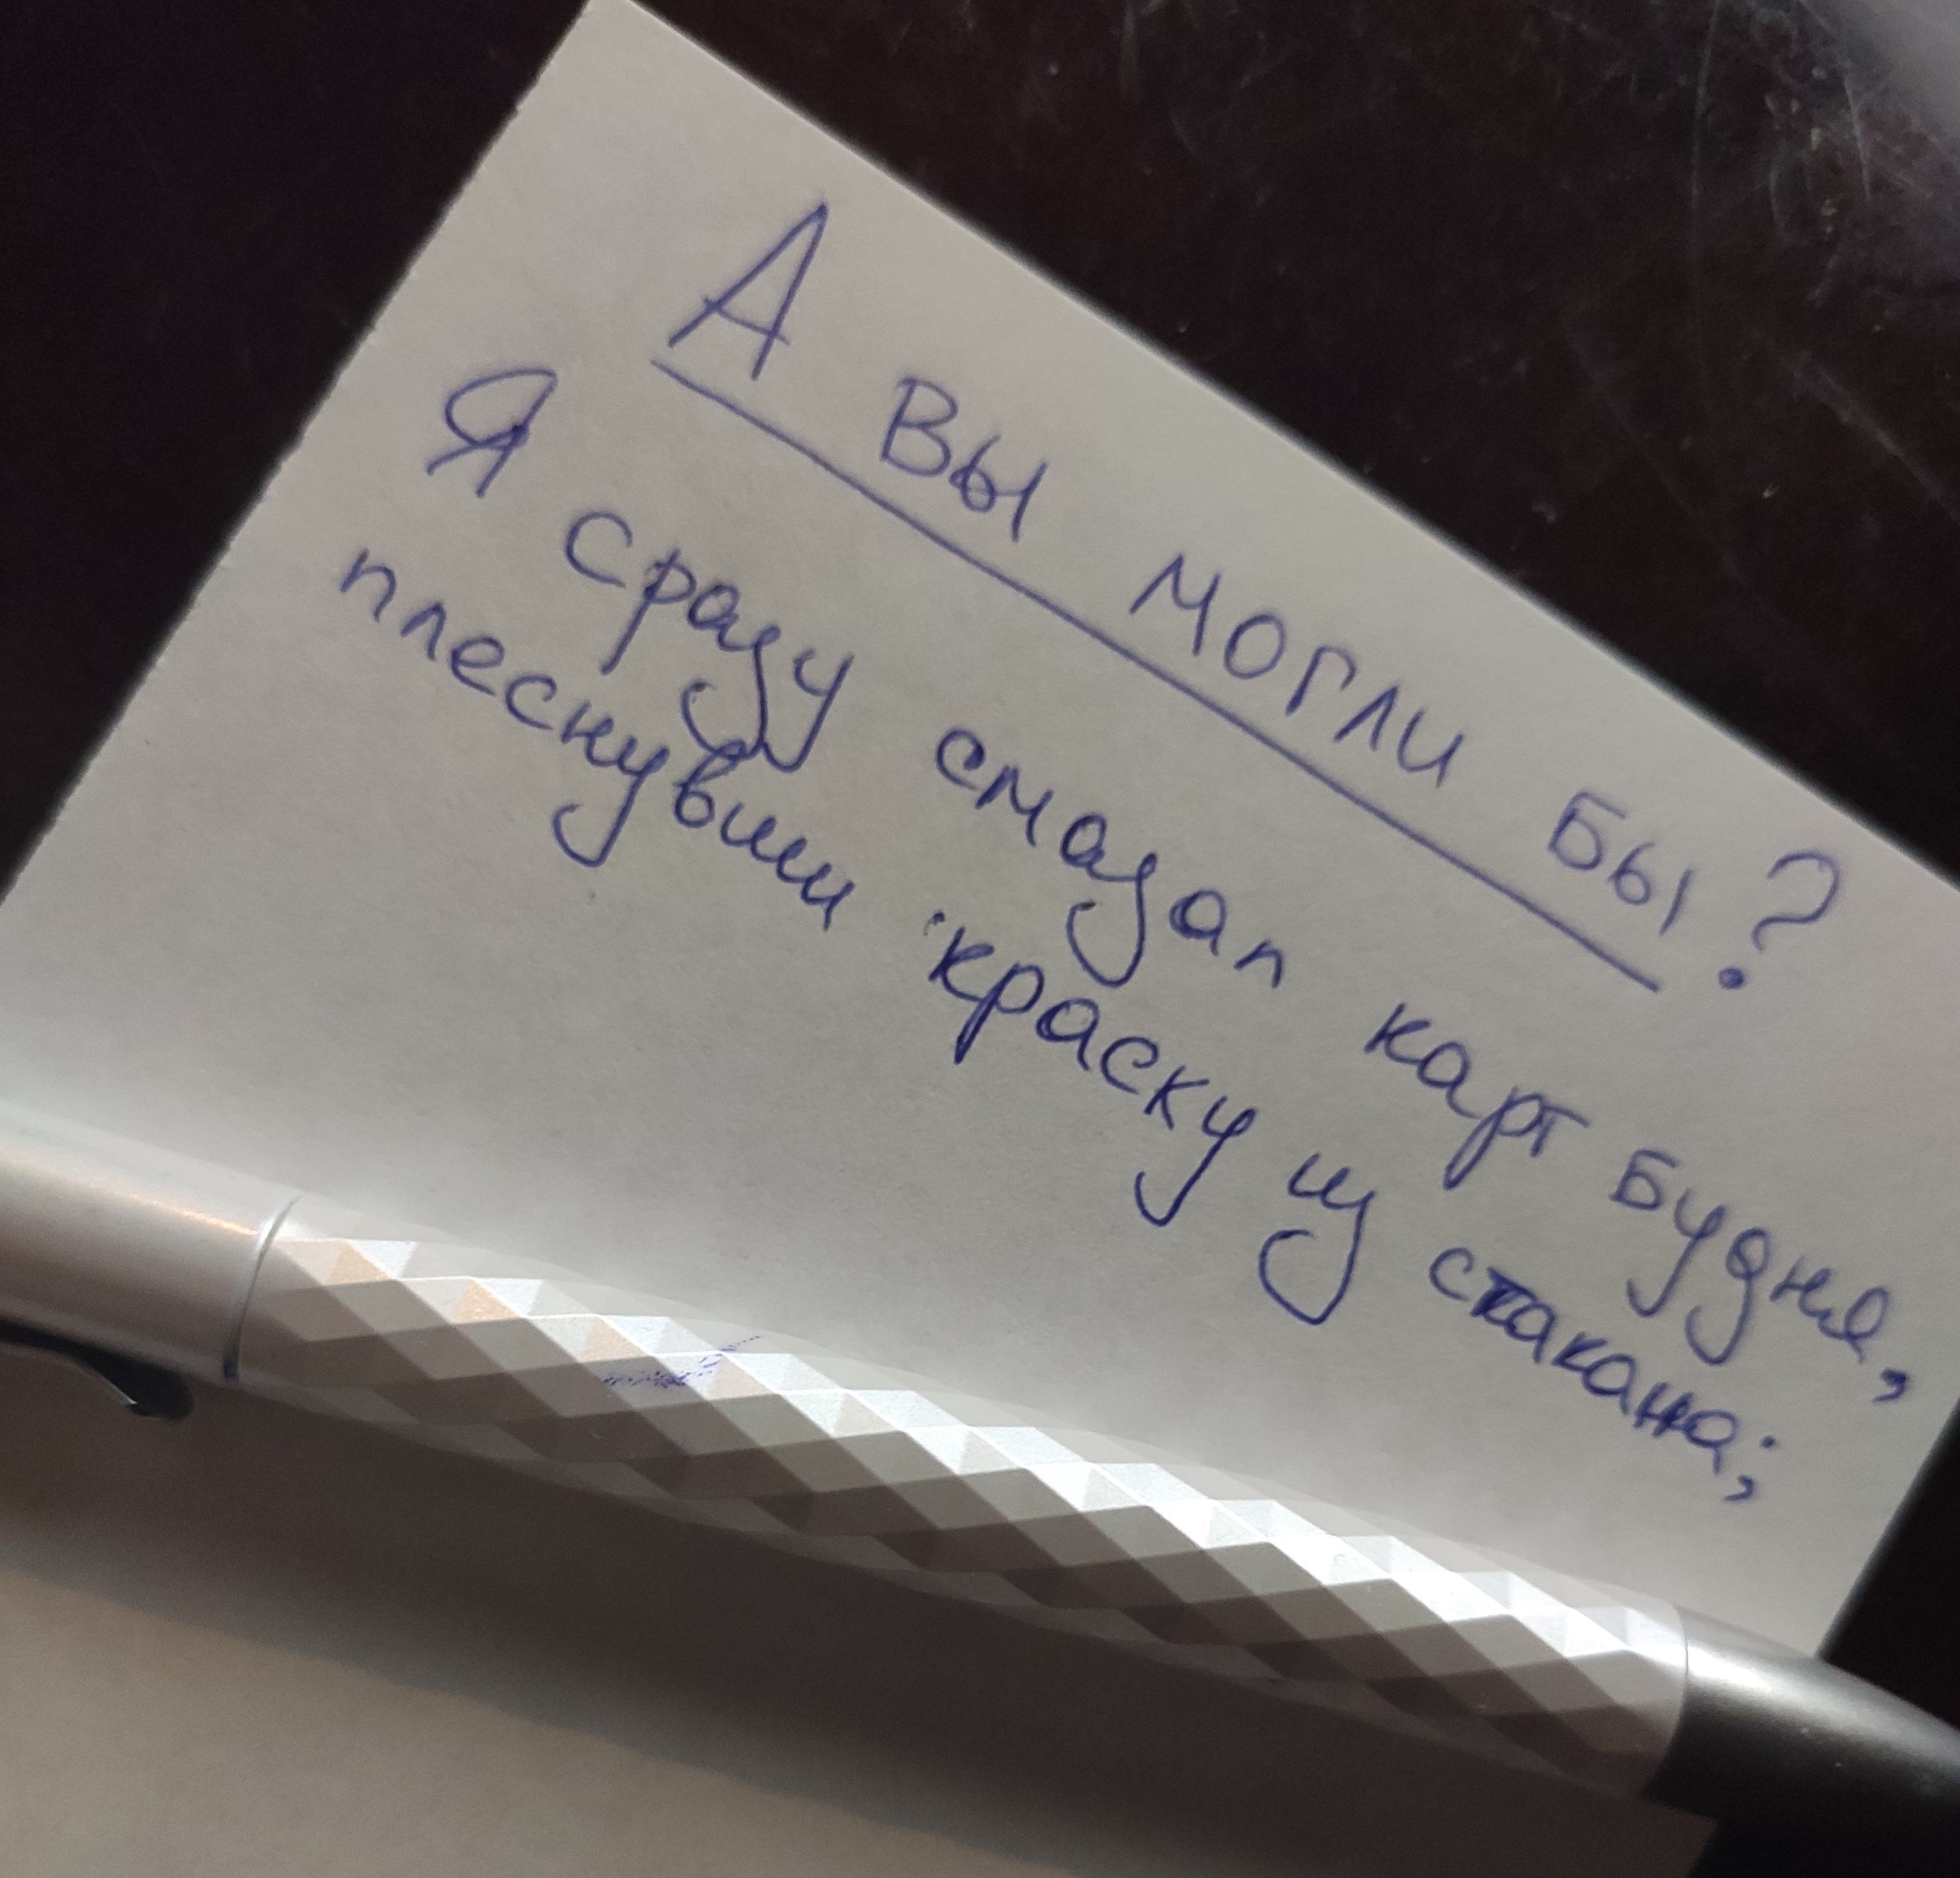 А вы могли бы?
Я сразу смазал карт будня,
плеснувши краску из стакана;